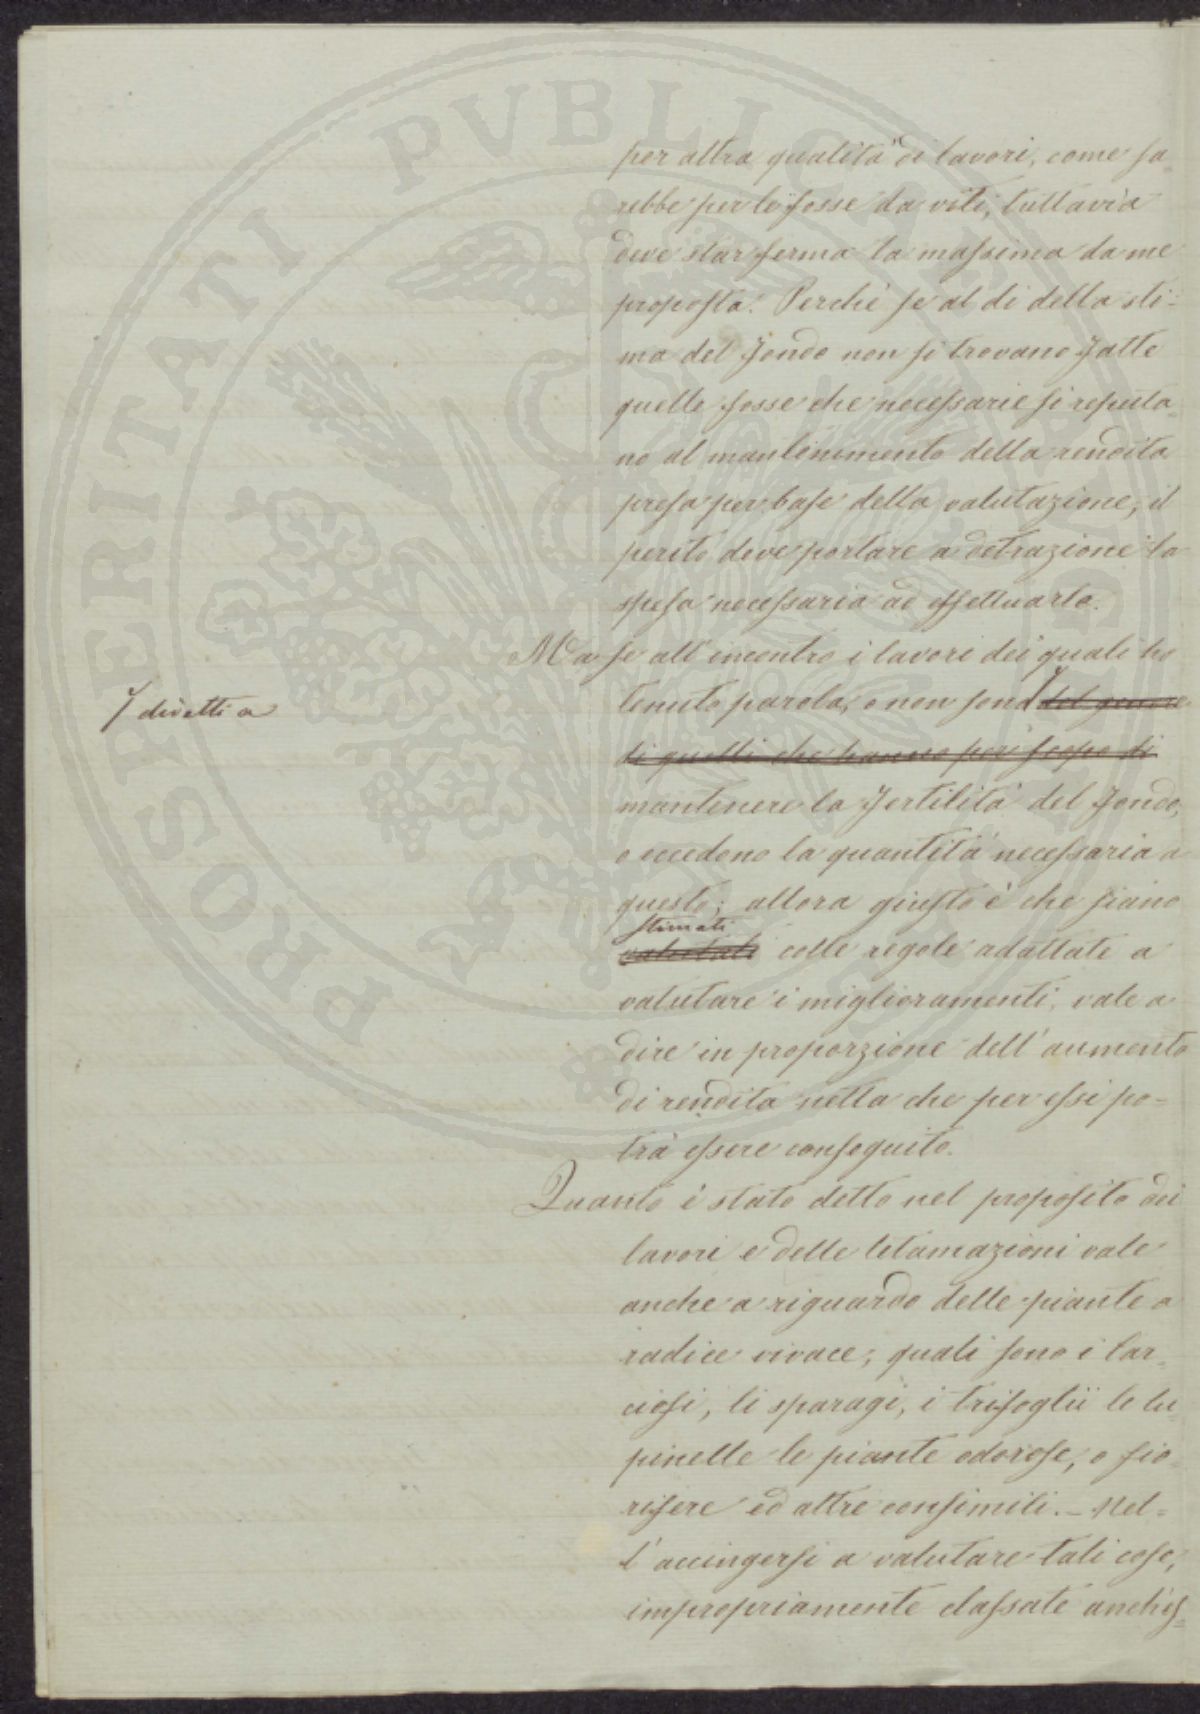 per altra qualità di lavori, come sa-
rebbe per le fosse da viti, tuttavia
deve star ferma la massima da me
proposta. Perchè se al dì della sti-
ma del fondo non si trovano fatte
quelle fosse che necessarie si reputa-
no al mantenimento della rendita
presa per base della valutazione, il
perito deve portare a detrazione la
spesa necessaria ad effettuarle.
Ma se all'incontro i lavori dei quali ho
tenuto parola, o non sono del genere
diretti a
di quelli che hanno per iscopo di
mantenere la fertilità del fondo,
o eccedono la quantità necessaria a
questo; allora giusto è che siano
stimati
valutati colle regole adattate a
valutare i miglioramenti, vale a
dire in proporzione dell'aumento
di rendita netta che per essi po-
trà essere conseguito.
Quanto è stato detto nel proposito dei
lavori e delle letamazioni vale
anche a riguardo delle piante a
radice vivace; quali sono i car-
ciofi, li sparagi, i trifoglii le lu-
pinelle le piante odorose, o fio-
rifere ed altre consimili. - Nel-
l'accingersi a valutare tali cose,
impropriamente classate anch'es-
PROSPERITATI PVBLICAE